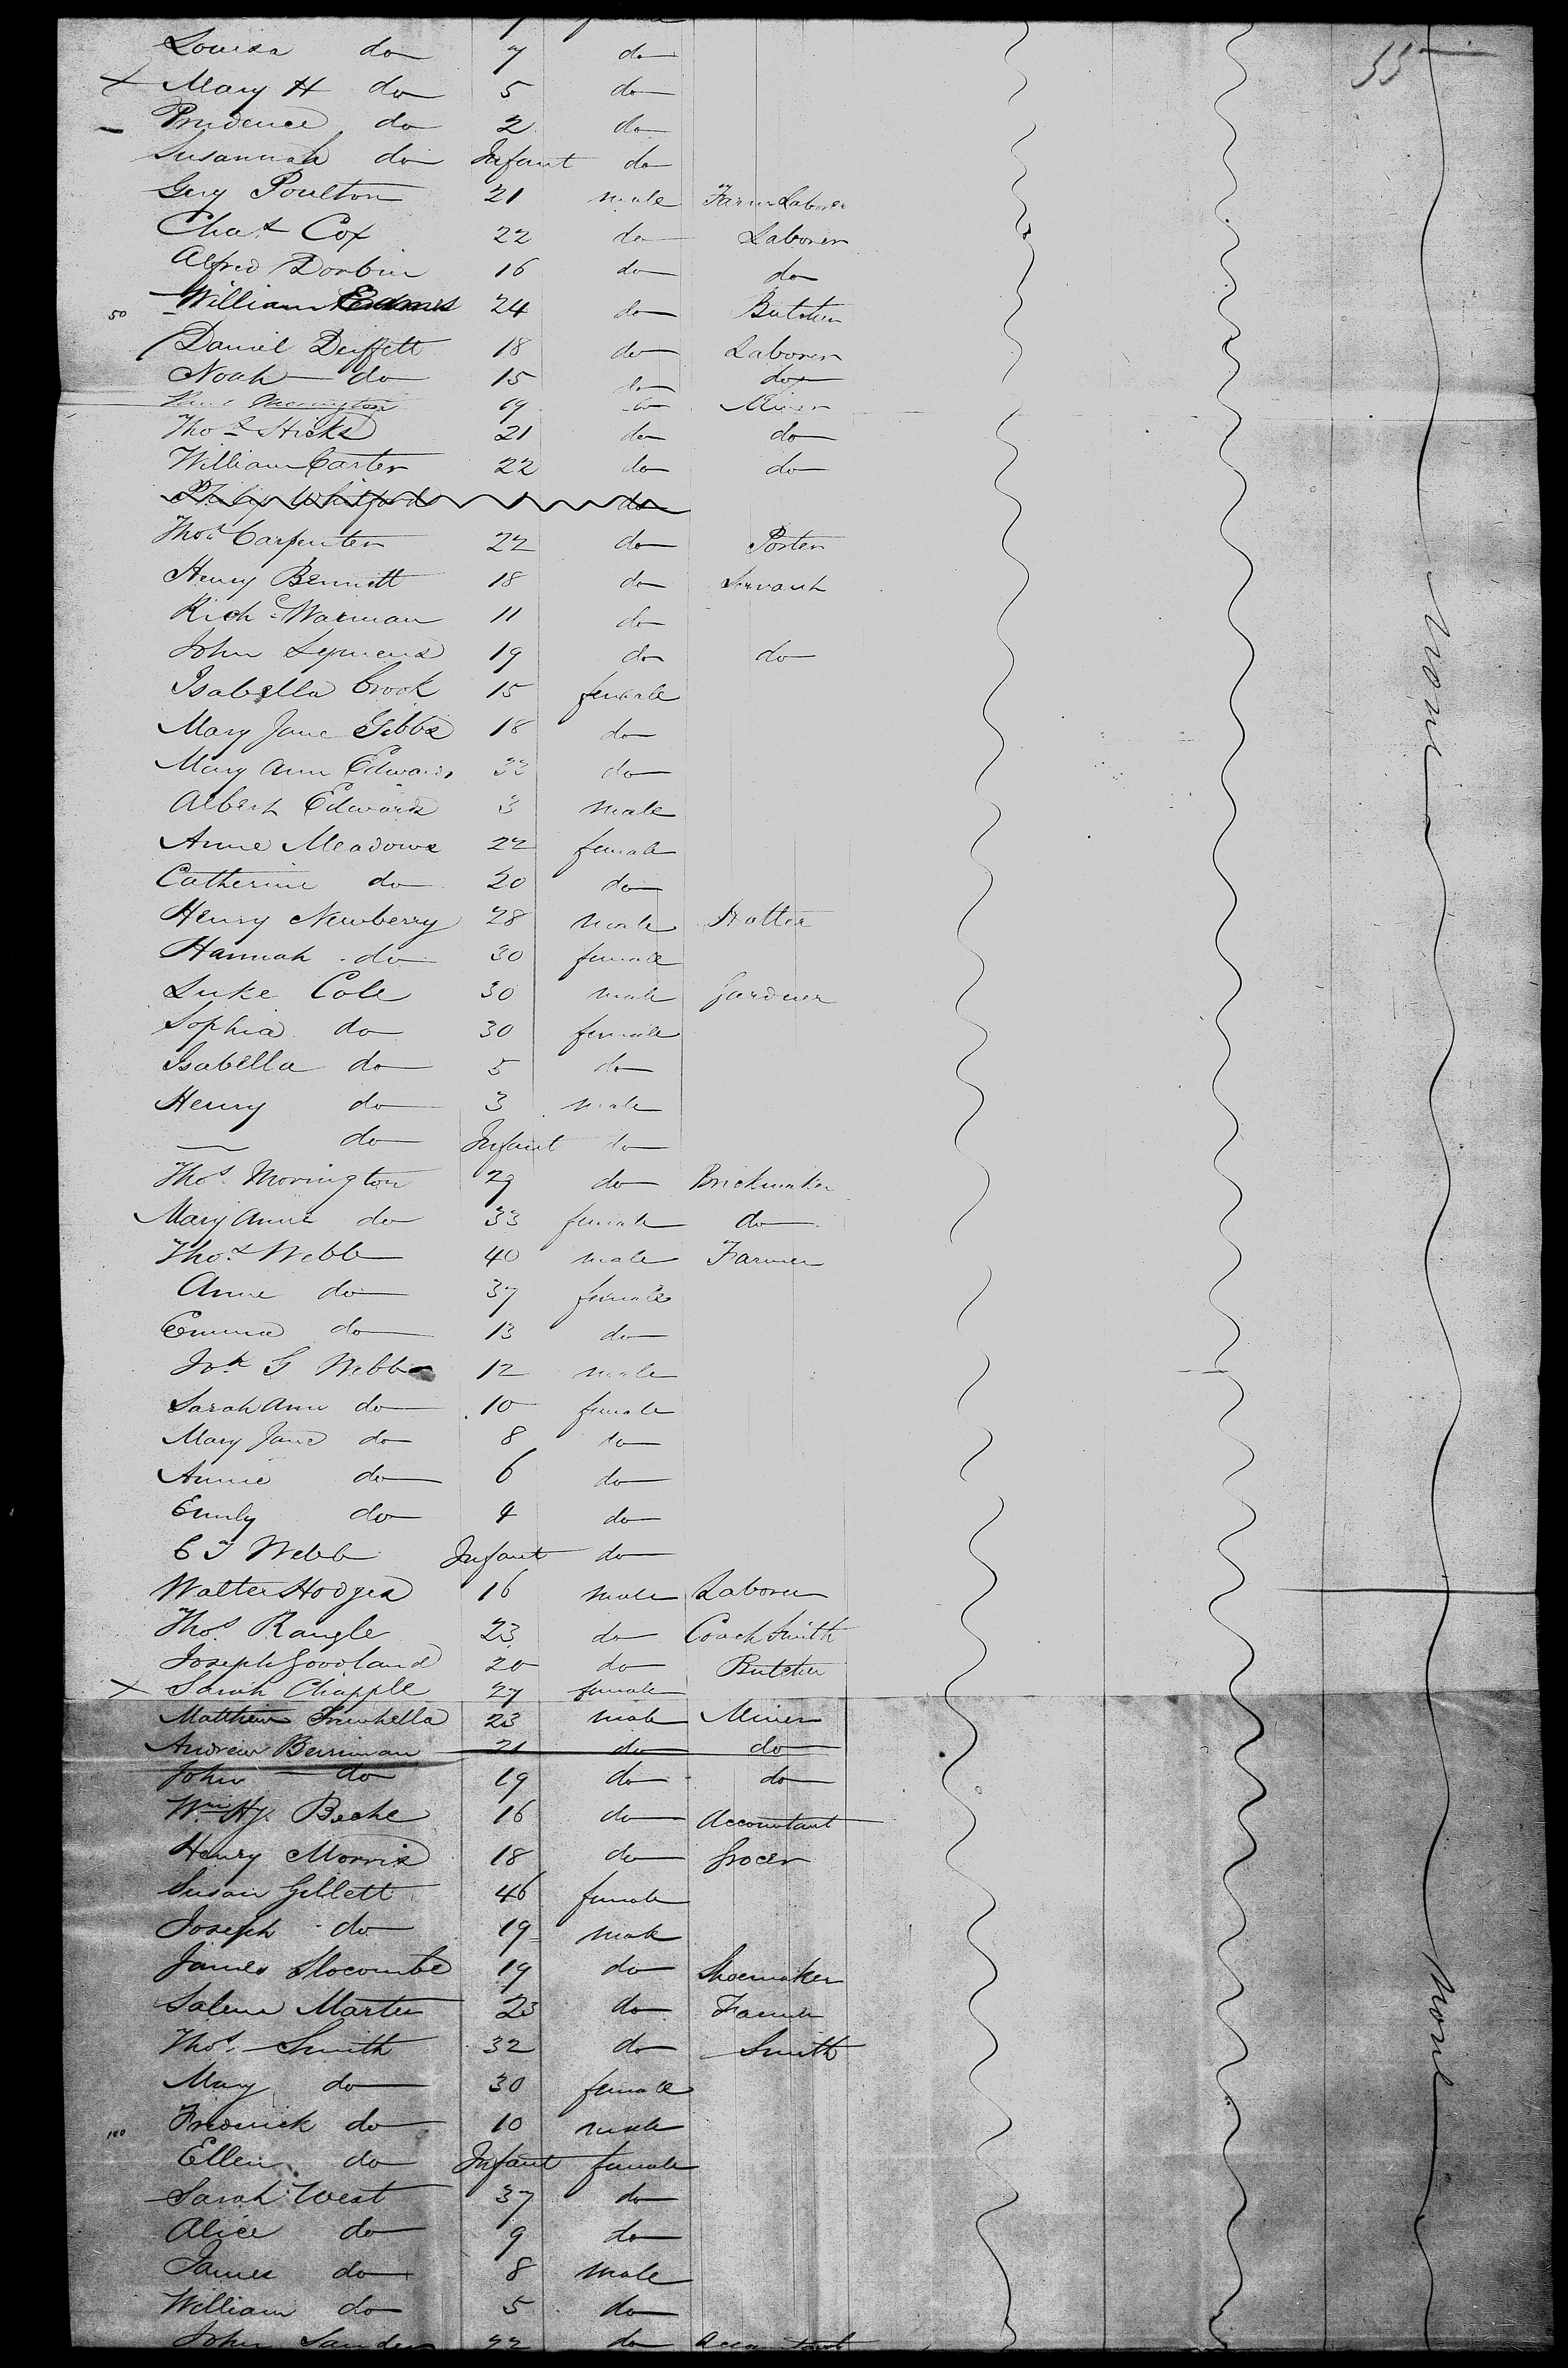 55
Louisa do 7 do
X Mary H do 5 do
Prudence do 2 do
Susannah do Infant do
Geo Poulton 21 male Farm Laborer
Chas Cox 22 do Laborer
Alfred Dorbin 16 do do
50 William 24 do Butcher
Daniel 18 do Laborer
Noah do 15 do do
19 do Miner
Thos Hicks 21 do do
William Carter 22 do do
Whitford do
Thos Carpenter 22 do Porter
Henry Bennett 18 do Servant
Richd Warman 11 do
John Symens 19 do do
Isabella Crook 15 female
Mary Jane Gibbs 18 do
Mary Ann Edwards 33 do
Albert Edwards 3 male
Anne Meadows 22 female
Catherine do 20 do
Henry Newberry 28 male Hatter
Hannah do 30 female
Luke Cole 30 male Gardner
Sophia do 30 female
Isabella do 5 do
Henry do 3 male
— do Infant do
Thos Mornington 29 do Brickmaker
Mary Anne do 33 female do
Thos Webb 40 male Farmer
Anne do 37 female
Emma do 13 do
Joh G Webb 12 male
Sarah Ann do 10 female
Mary Jane do 8 do
Annie do 6 do
Emily do 4 do
C J Webb Infant do
Walter Hodges 16 male Laborer
Thos Rangle 23 do Coach Smith
Joseph Gooland 20 do Butcher
X Sarah Chapple 27 female
Matthew Trewhella 23 male Miner
Andrew Berriman 21 do do
John do 19 do do
Wm Hy Beche 16 do Accountant
Henry Morris 18 do Grocer
Susan Gillett 46 female
Joseph do 19 male
James Slocombe 19 do Shoemaker
Salem Marter 23 do Farmer
Thos Smith 32 do Smith
Mary do 30 female
100 Frederick do 10 male
Ellen do Infant female
Sarah West 37 do
Alice do 9 do
James do 8 male
William do 5 do
John 22 do Accountant
None
None